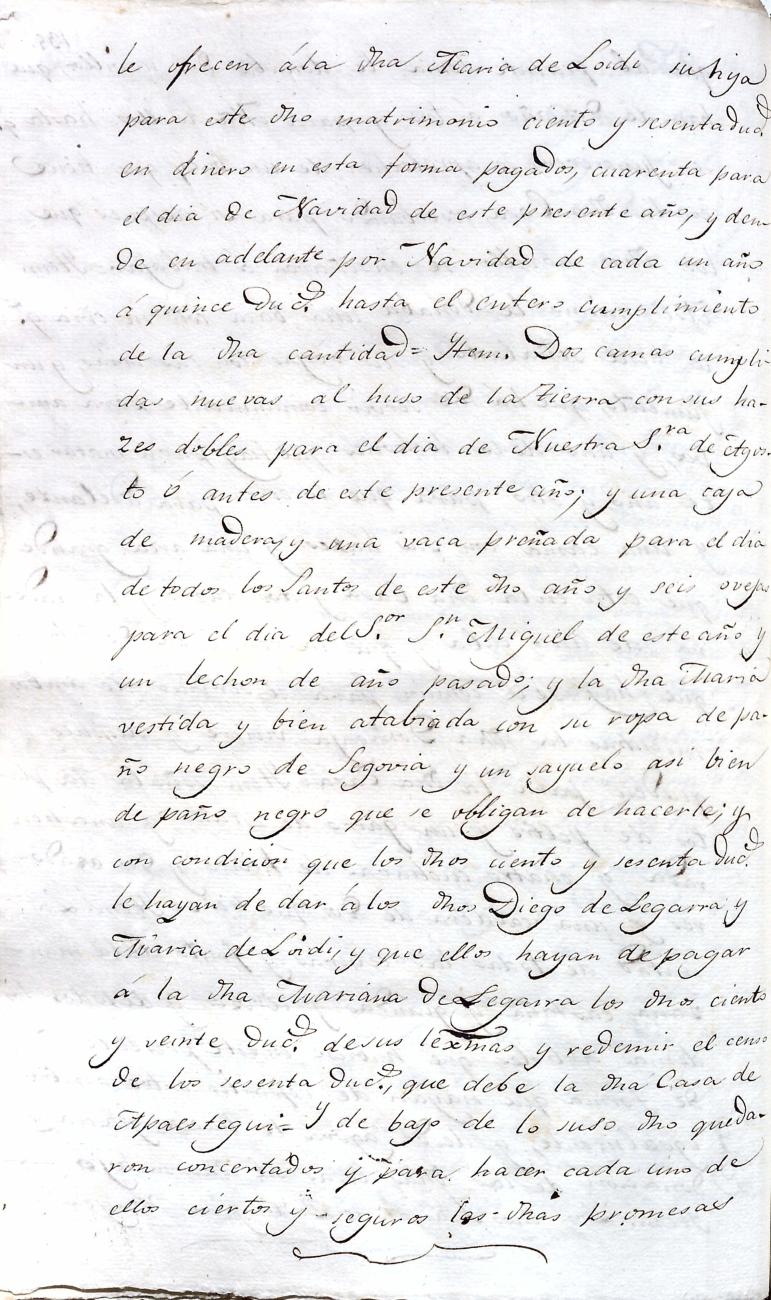 le ofrecen á la dha Maria de Loidi su hija
para este dho matrimonio ciento y sesenta duc.s
en dinero en esta forma pagados, cuarenta para
el dia de Navidad de este presente año, y den-
de en adelante por Navidad de cada un año
á quince duc.s hasta el entero cumplimiento
de la dha cantidad= Ytem. Dos camas cumpli-
das nuevas al huso de la tierra con sus ha-
zes dobles para el dia de Nuestra S.ra de Agos-
to ó antes de este presente año; y una caja
de madera, y una vaca preñada para el dia
de todos los Santos de este dho año y seis ovejas
para el dia del S.or S.n Miguel de este año y
un lechon de año pasado; y la dha Maria
vestida y bien atabiada con su ropa de pa-
ño negro de Segovia y un sayuelo asi bien
de paño negro que se obligan de hacerle; y
con condicion que los dhos ciento y sesenta duc.s
le hayan de dar á los dhos Diego de Legarra y
Maria de Loidi, y que ellos hayan de pagar
á la dha Mariana de Legarra los dhos ciento
y veinte duc.s de sus lexmas y redemir el censo
de los sesenta duc.s, que debe la dha Casa de
Apaestegui= Y de bajo de lo suso dho queda-
ron concertados y para hacer cada uno de
ellos ciertos y seguros las dhas promesas